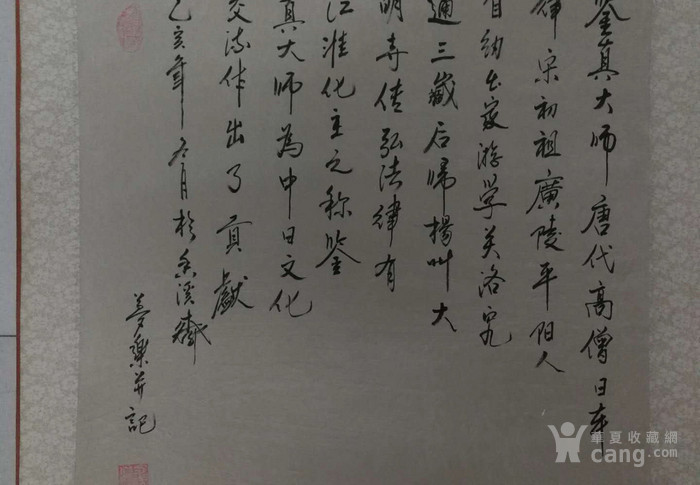 鉴真大师唐代高僧日本
律宗初祖廣陵平阳人
自幼出家游學关洛究
通三藏后歸揚州大
明寺传弘法律有
江淮化主之称鉴
真大师為中日文化
交流作出了貢獻
乙亥年冬月於香溪
夢樂并記
華夏收藏網
cang.com